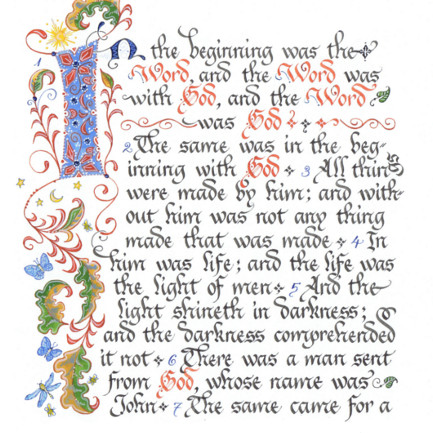 In the beginning was the
Word, and the Word was
with God, and the Word
was God
2 The same was in the beg-
inning with God 3 All things
were made by him; and with
out him was not any thing
made that was made 4 In
him was life; and the life was
the light of men 5 And the
light shineth in darkness;
and the darkness comprehended
it not 6 There was a man sent
from God, whose name was
John 7 The same came for a